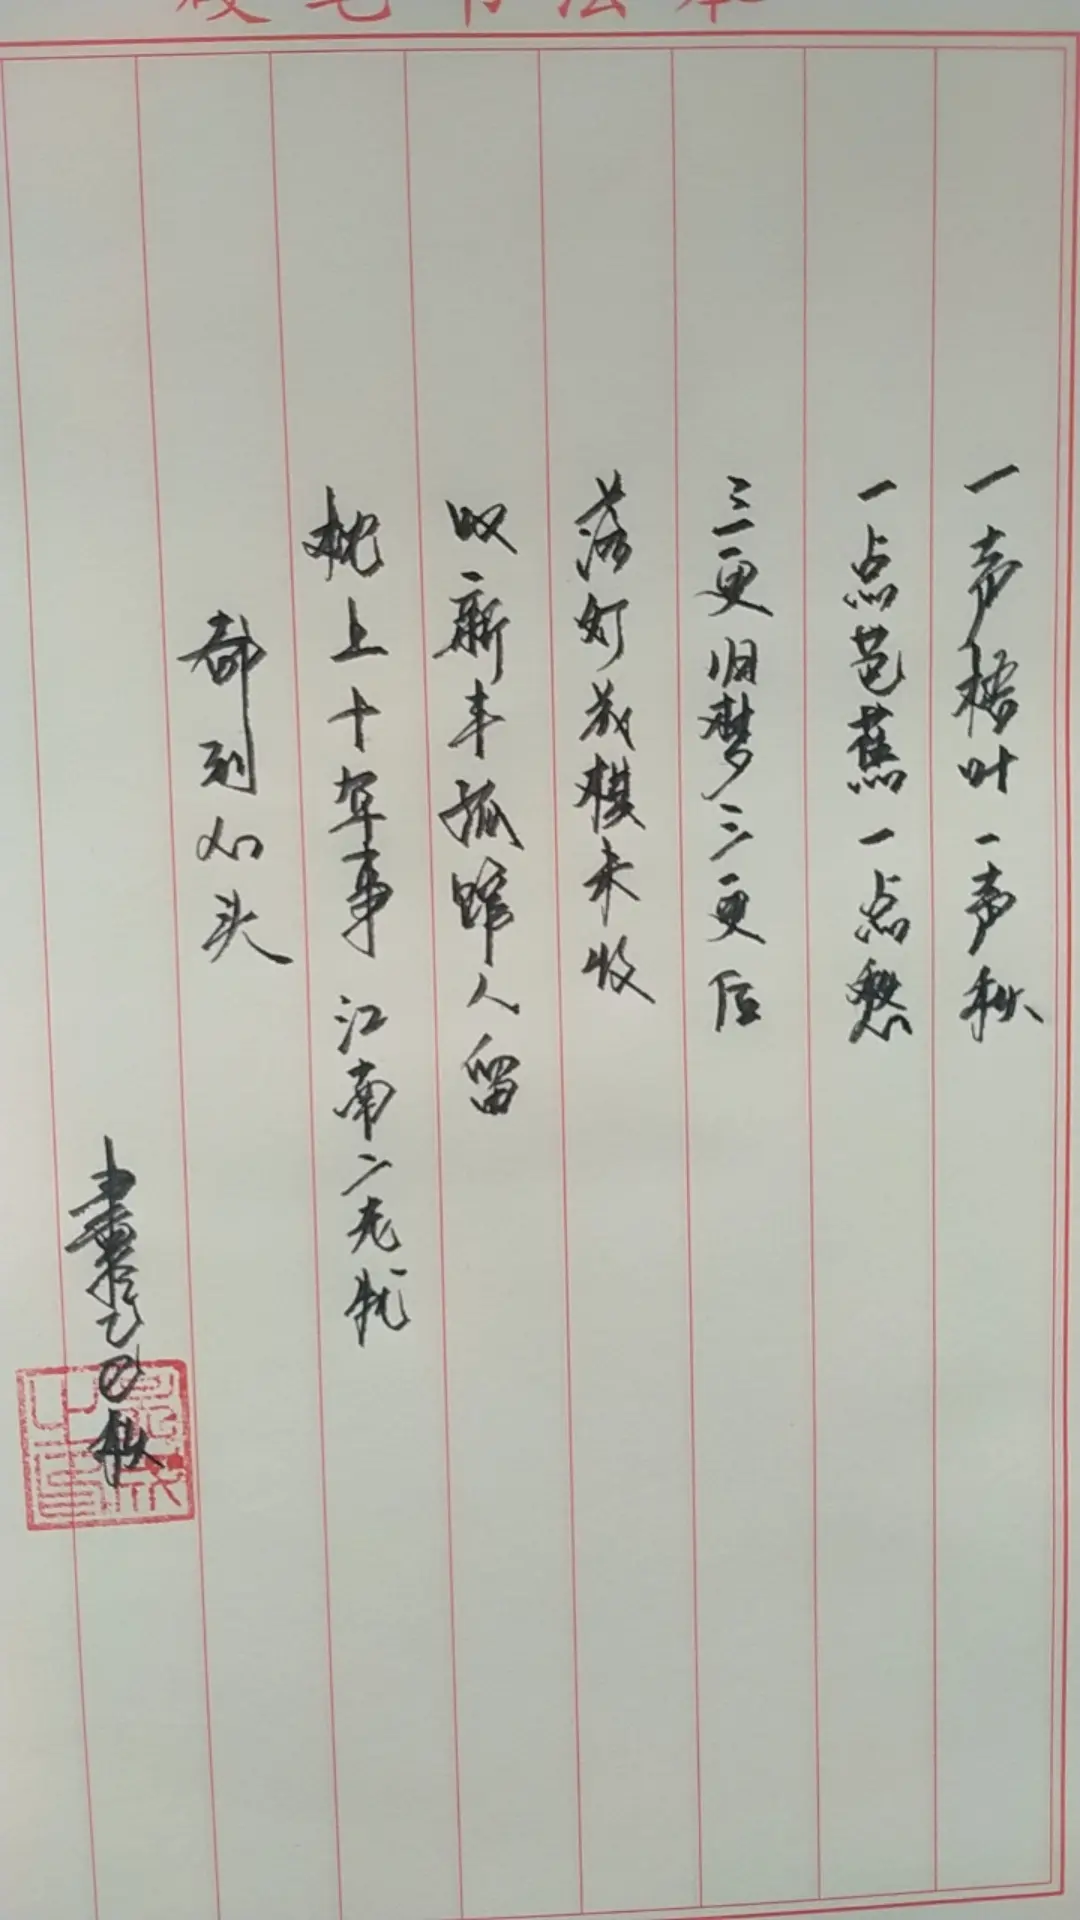 硬笔书法本
一声梧叶一声秋
一点芭蕉一点愁
三更归梦三更后
落灯花棋未收
叹新丰孤馆人留
枕上十年事 江南二老忧
都到心头
乙巳秋